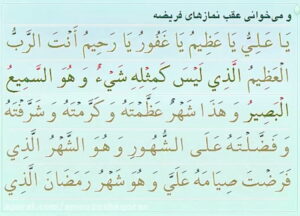 و می‌خوانی عقب نمازهای فریضه
یَا عَلِیُّ یَا عَظِیمُ یَا غَفُورُ یَا رَحِیمُ أَنْتَ الرَّبُّ
الْعَظِیمُ الَّذِي لَیْسَ کَمِثْلِهِ شَيْءٌ وَ هُوَ السَّمِیعُ
الْبَصِیرُ وَ هَذَا شَهْرٌ عَظَّمْتَهُ وَ کَرَّمْتَهُ وَ شَرَّفْتَهُ
وَ فَضَّلْتَهُ عَلَی الشُّهُورِ وَ هُوَ الشَّهْرُ الَّذِي
فَرَضْتَ صِیَامَهُ عَلَيَّ وَ هُوَ شَهْرُ رَمَضَانَ الَّذِي